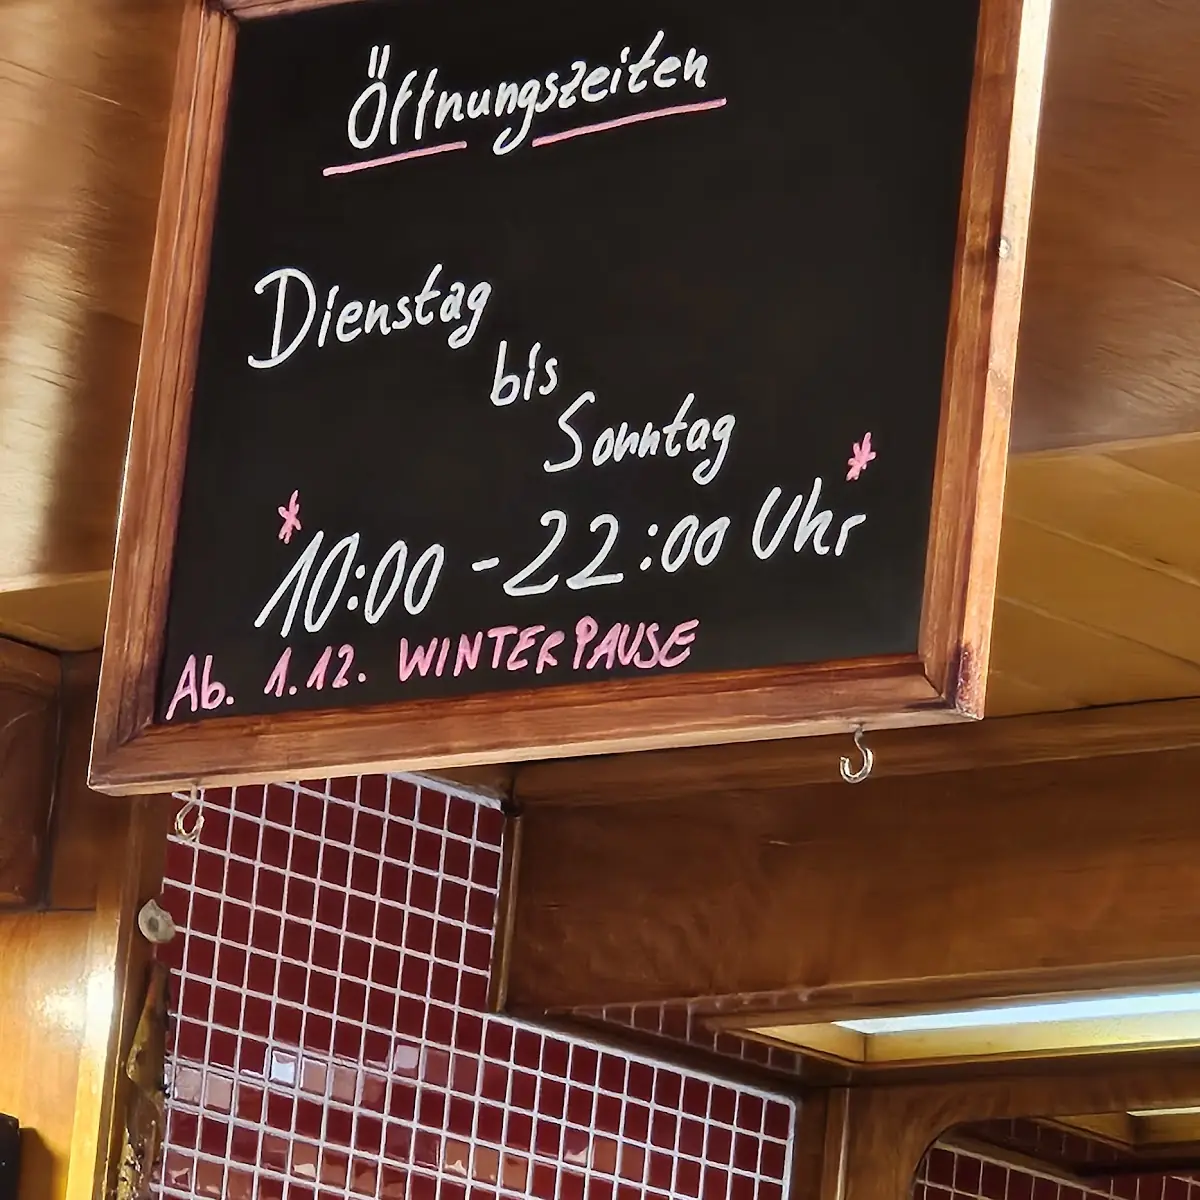 Öffnungszeiten
Dienstag
bis
Sonntag
*10:00 - 22:00 Uhr*
Ab. 1.12. WINTERPAUSE